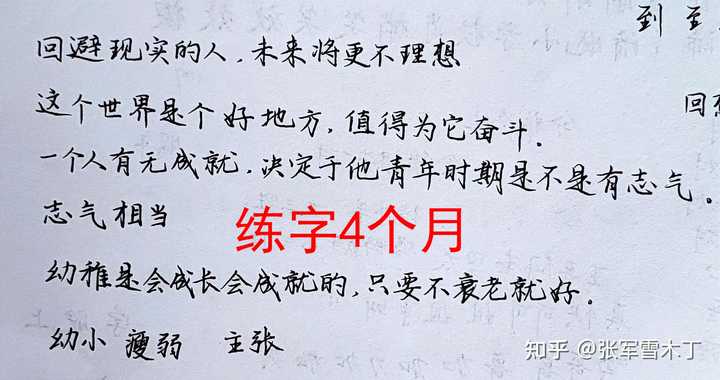 到 至
回避现实的人，未来将更不理想
回
这个世界是个好地方，值得为它奋斗。
一个人有无成就，决定于他青年时期是不是有志气。
志气相当
练字4个月
幼稚是会成长会成就的，只要不衰老就好。
幼小 瘦弱 主张
知乎 @张军雪木丁